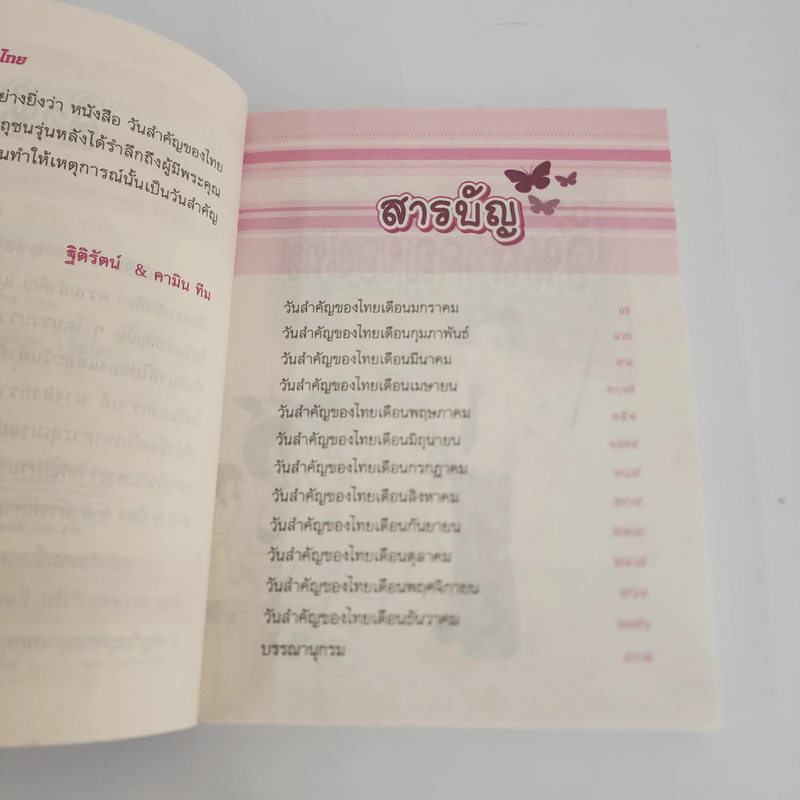 ไทย
ย่างยิ่งว่า หนังสือ วันสำคัญของไทย
ถุชนรุ่นหลังได้รำลึกถึงผู้มีพระคุณ
นทำให้เหตุการณ์นั้นเป็นวันสำคัญ
ฐิติรัตน์ & คามิน ทีม
สารบัญ
วันสำคัญของไทยเดือนมกราคม ๗
วันสำคัญของไทยเดือนกุมภาพันธ์
วันสำคัญของไทยเดือนมีนาคม
วันสำคัญของไทยเดือนเมษายน
วันสำคัญของไทยเดือนพฤษภาคม
วันสำคัญของไทยเดือนมิถุนายน
วันสำคัญของไทยเดือนกรกฎาคม
วันสำคัญของไทยเดือนสิงหาคม
วันสำคัญของไทยเดือนกันยายน
วันสำคัญของไทยเดือนตุลาคม
วันสำคัญของไทยเดือนพฤศจิกายน
วันสำคัญของไทยเดือนธันวาคม
บรรณานุกรม